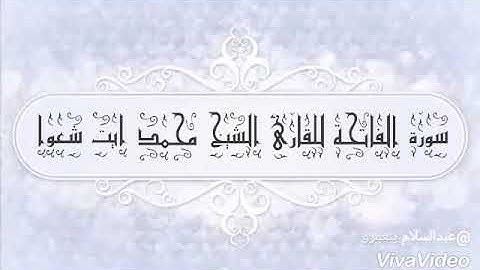 سورة الفاتحة للقارئ الشيخ محمد ايت شعوا
@عبدالسلام.بنعمرو
VivaVideo